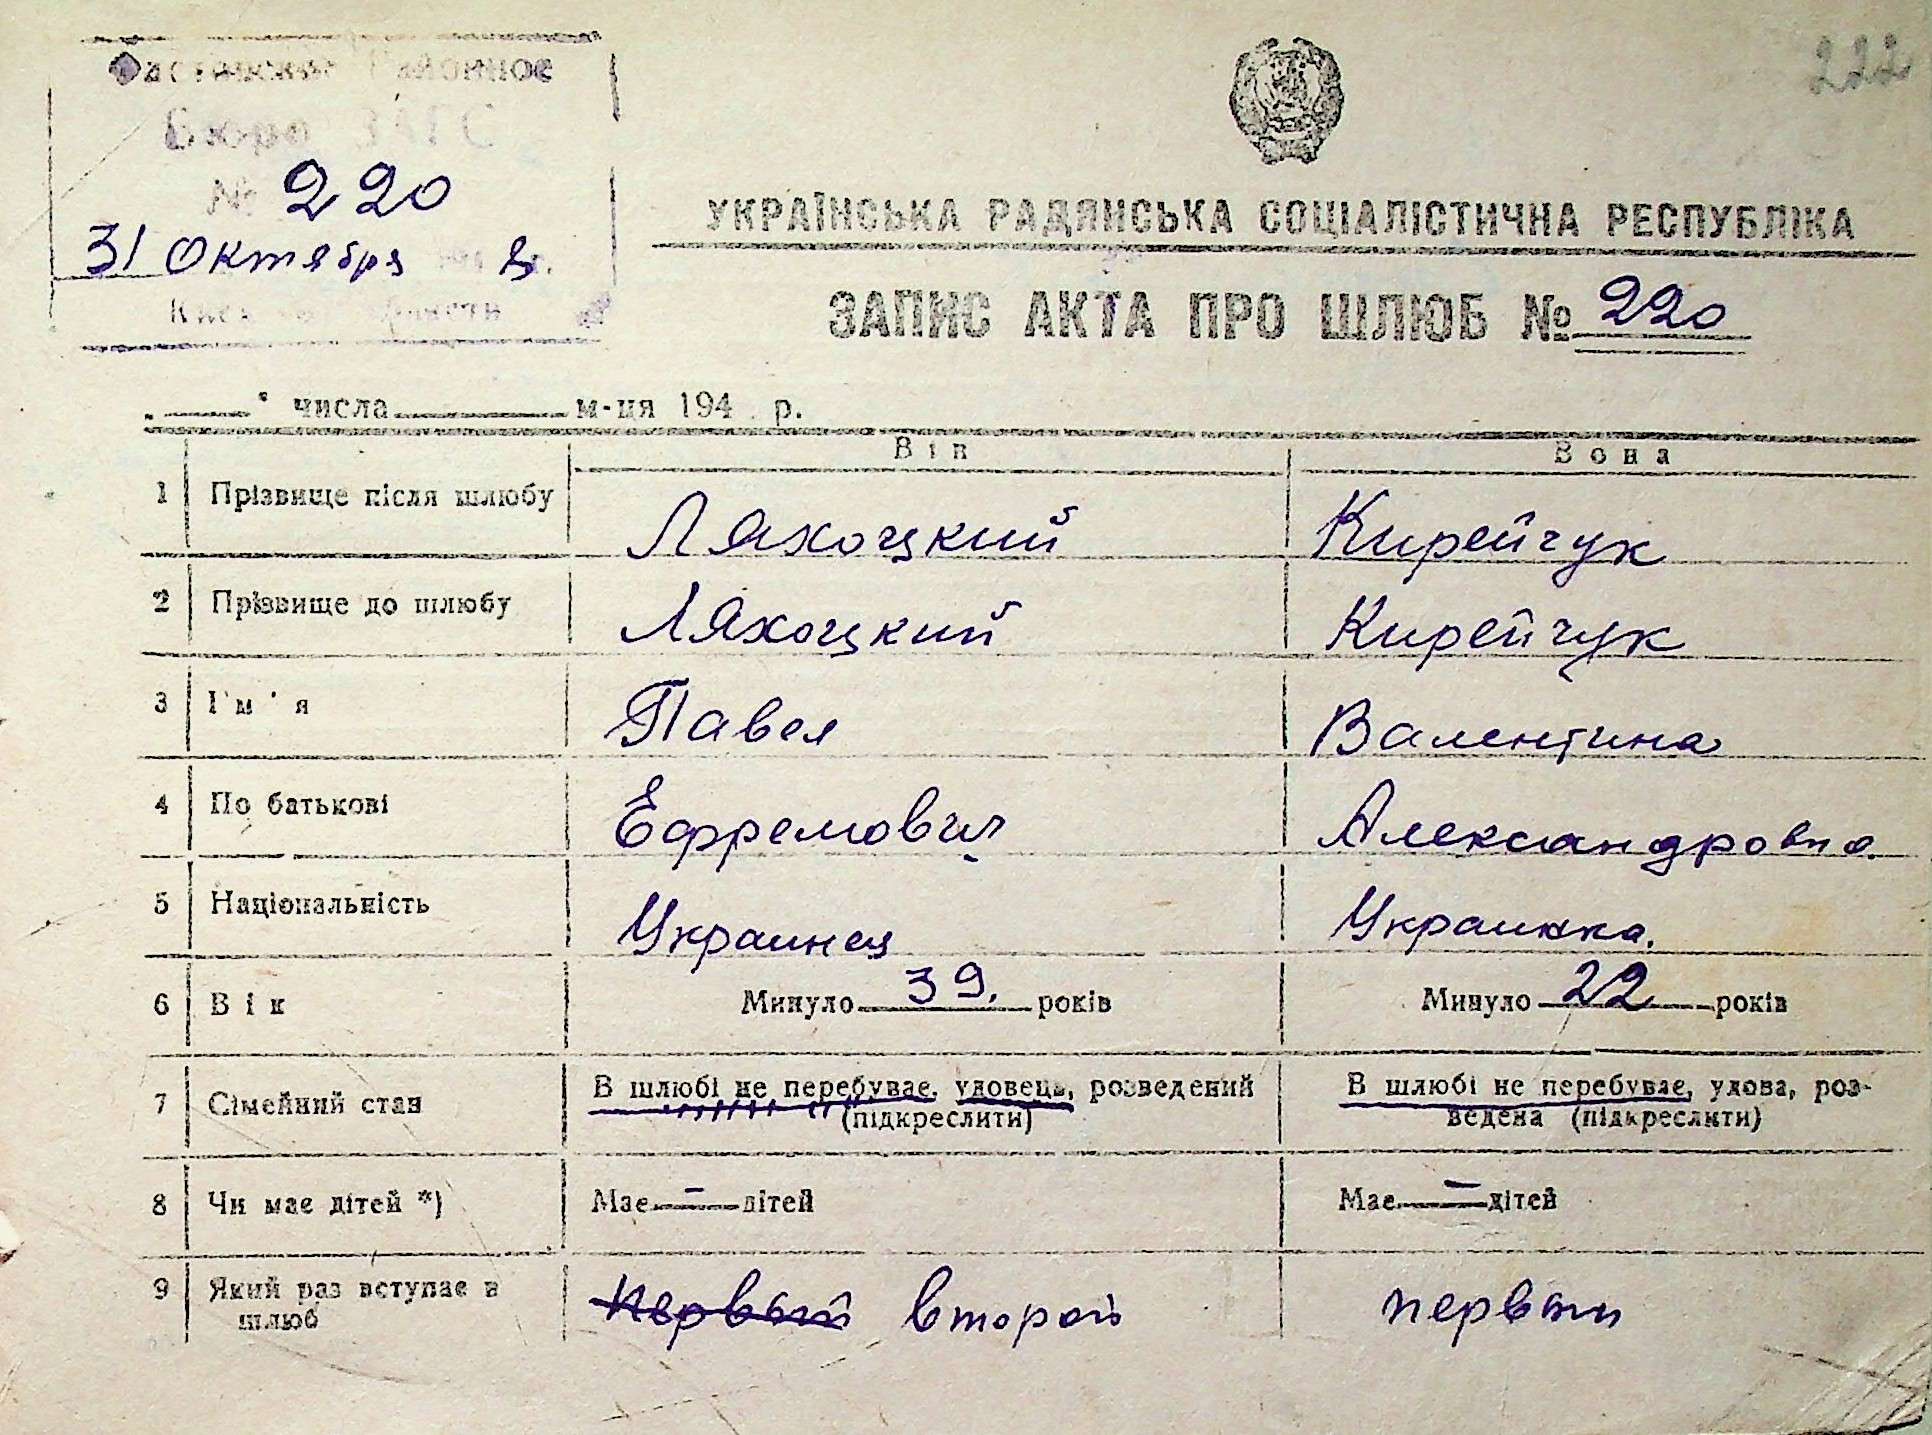 Районное
Бюро ЗАГС
№ 220
31 Октября
222
УКРАЇНСЬКА РАДЯНСЬКА СОЦІАЛІСТИЧНА РЕСПУБЛІКА
ЗАПИС АКТА ПРО ШЛЮБ № 220
" числа м-ця 194 р.
Він Вона
1 Прізвище після шлюбу Ляхоцкий Кирейчук
2 Прізвище до шлюбу Ляхоцкий Кирейчук
3 Ім'я Павел Валентина
4 По батькові Ефремович Александровна
5 Національність Украинец Украинка.
6 Вік Минуло 39. років Минуло 22 років
7 Сімейний стан В шлюбі не перебуває, удовець, розведений В шлюбі не перебуває, удова, роз-
(підкреслити) ведена (підкреслити)
8 Чи має дітей *) Має — дітей Має — дітей
9 Який раз вступає в шлюб первый второй первый